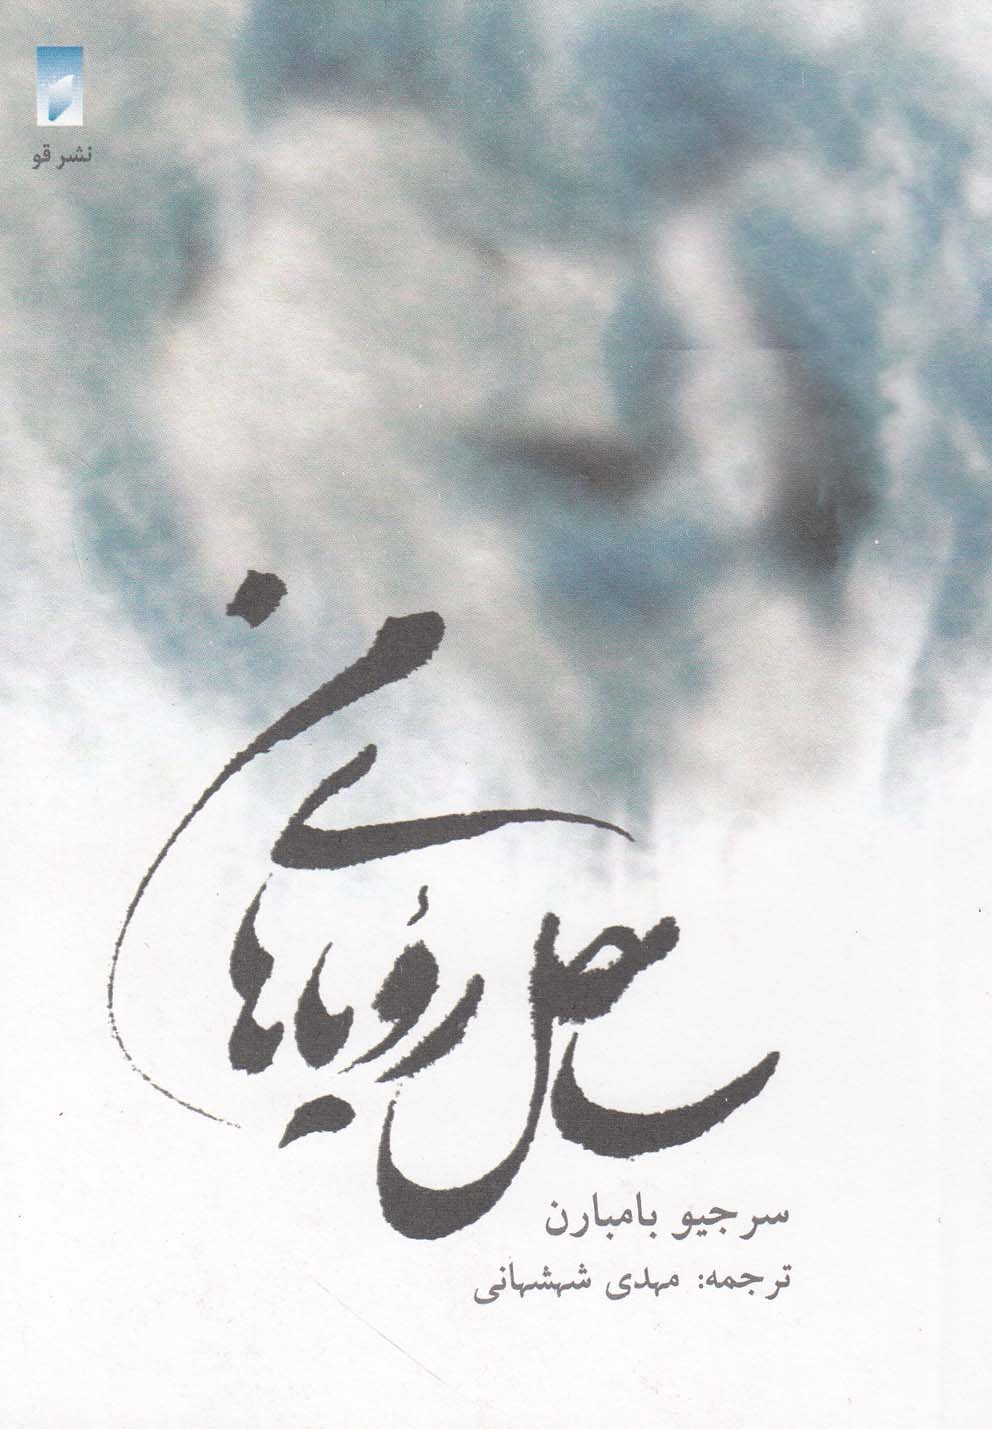 نشر قو
ساحل رؤیاهای من
سرجیو بامبارن
ترجمه: مهدی شهشهانی